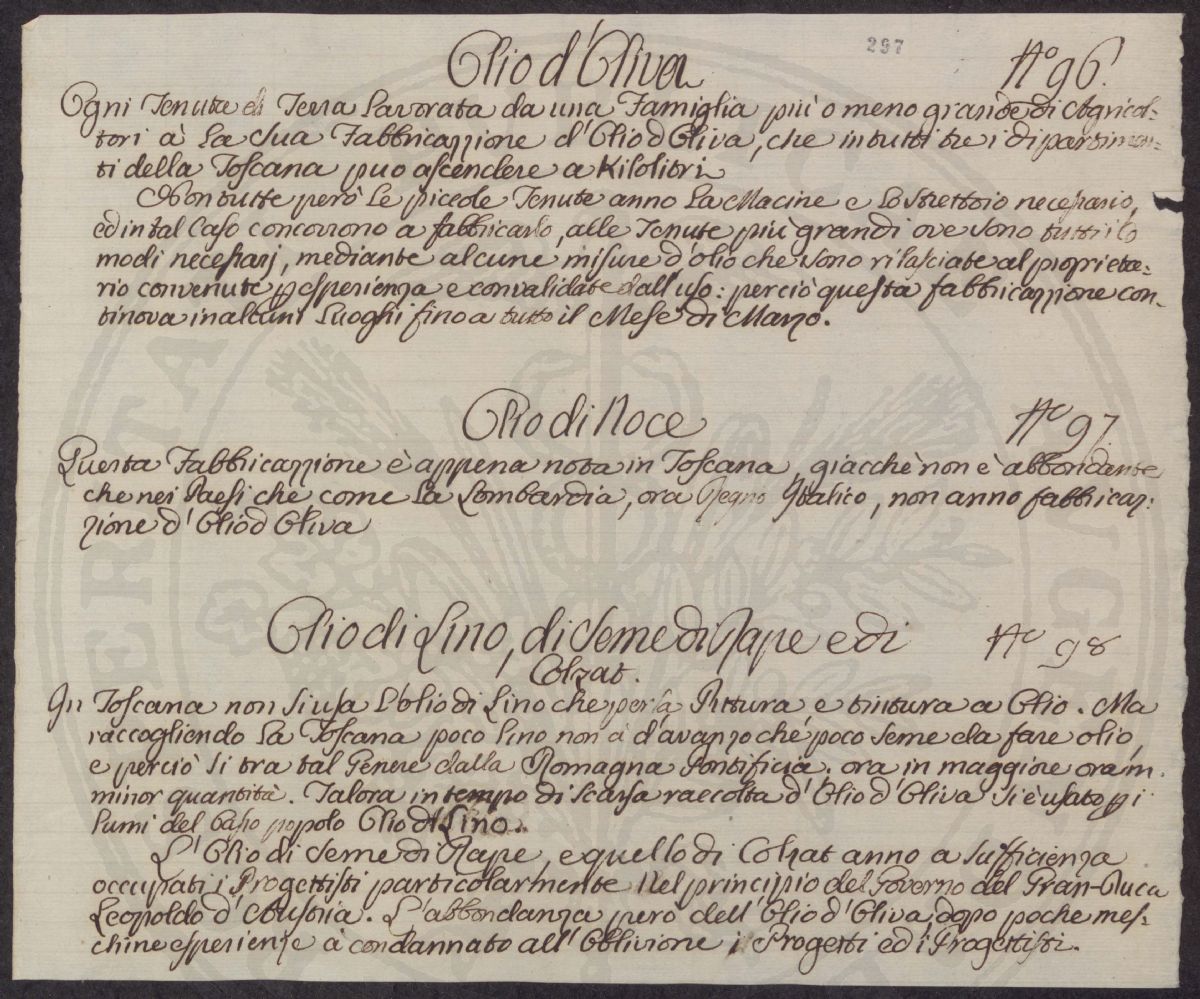 297
Olio d'Oliva N.o 96.
Ogni Tenuta di Terra Lavorata da una Famiglia più o meno grande di Agricol=
tori à La sua Fabbricazzione d'Olio d'Oliva, che in tutti tre i dipartimen=
ti della Toscana puo ascendere a Kilolitri
Non tutte però Le piccole Tenute anno La Macine e Lo strettoio necessario,
ed in tal Caso concorrono a fabbricarlo, alle Tenute più grandi ove sono tutti i co
modi necessarj, mediante alcune misure d'olio che sono rilasciate al proprieta=
rio convenute p esperienza e convalidate dall'uso: perciò questa fabbricazzione con=
tinova in alcuni Luoghi fino a tutto il Mese di Marzo.
Olio di Noce N.o 97.
Questa Fabbricazzione è appena nota in Toscana, giacchè non è abbondante
che nei Paesi che come La Lombardia, ora Regno Italico, non anno fabbricaz=
zione d'Olio d'Oliva
Olio di Lino, di Seme di Rape e di N.o 98
Colzat.
In Toscana non si usa L'olio di Lino che per la Pittura, e tintura a Olio. Ma
raccogliendo La Toscana poco Lino non à d'avanzo che poco seme da fare olio,
e perciò si tra tal Genere dalla Romagna Pontificia. ora in maggiore ora in
minor quantità. Talora in tempo di scarsa raccolta d'Olio d'Oliva si è usato p i
Lumi del Basso popolo Olio di Lino.
L'Olio di Seme di Rape, e quello di Colzat anno a sufficienza
occupati i Progettisti particolarmente Nel principio del Governo del Gran-Duca
Leopoldo d'Austria. L'abbondanza però dell'Olio d'Oliva, dopo poche mes=
chine esperienze à condannato all'Oblivione i Progetti ed i Progettisti.